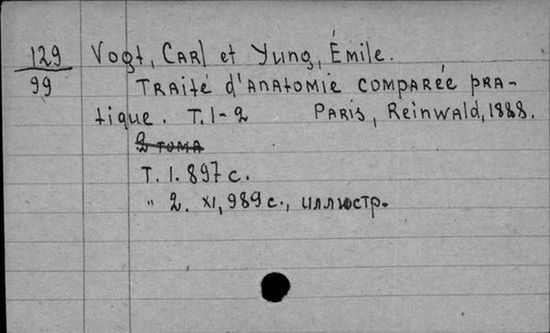 129 Vogt, Carl et Yung, Émile.
99 Traité d'anatomie comparée pra-
tique. T. 1-2 Paris, Reinwald, 1888.
2 тома
T. 1. 897 с.
" 2. XI, 989 с., иллюстр.